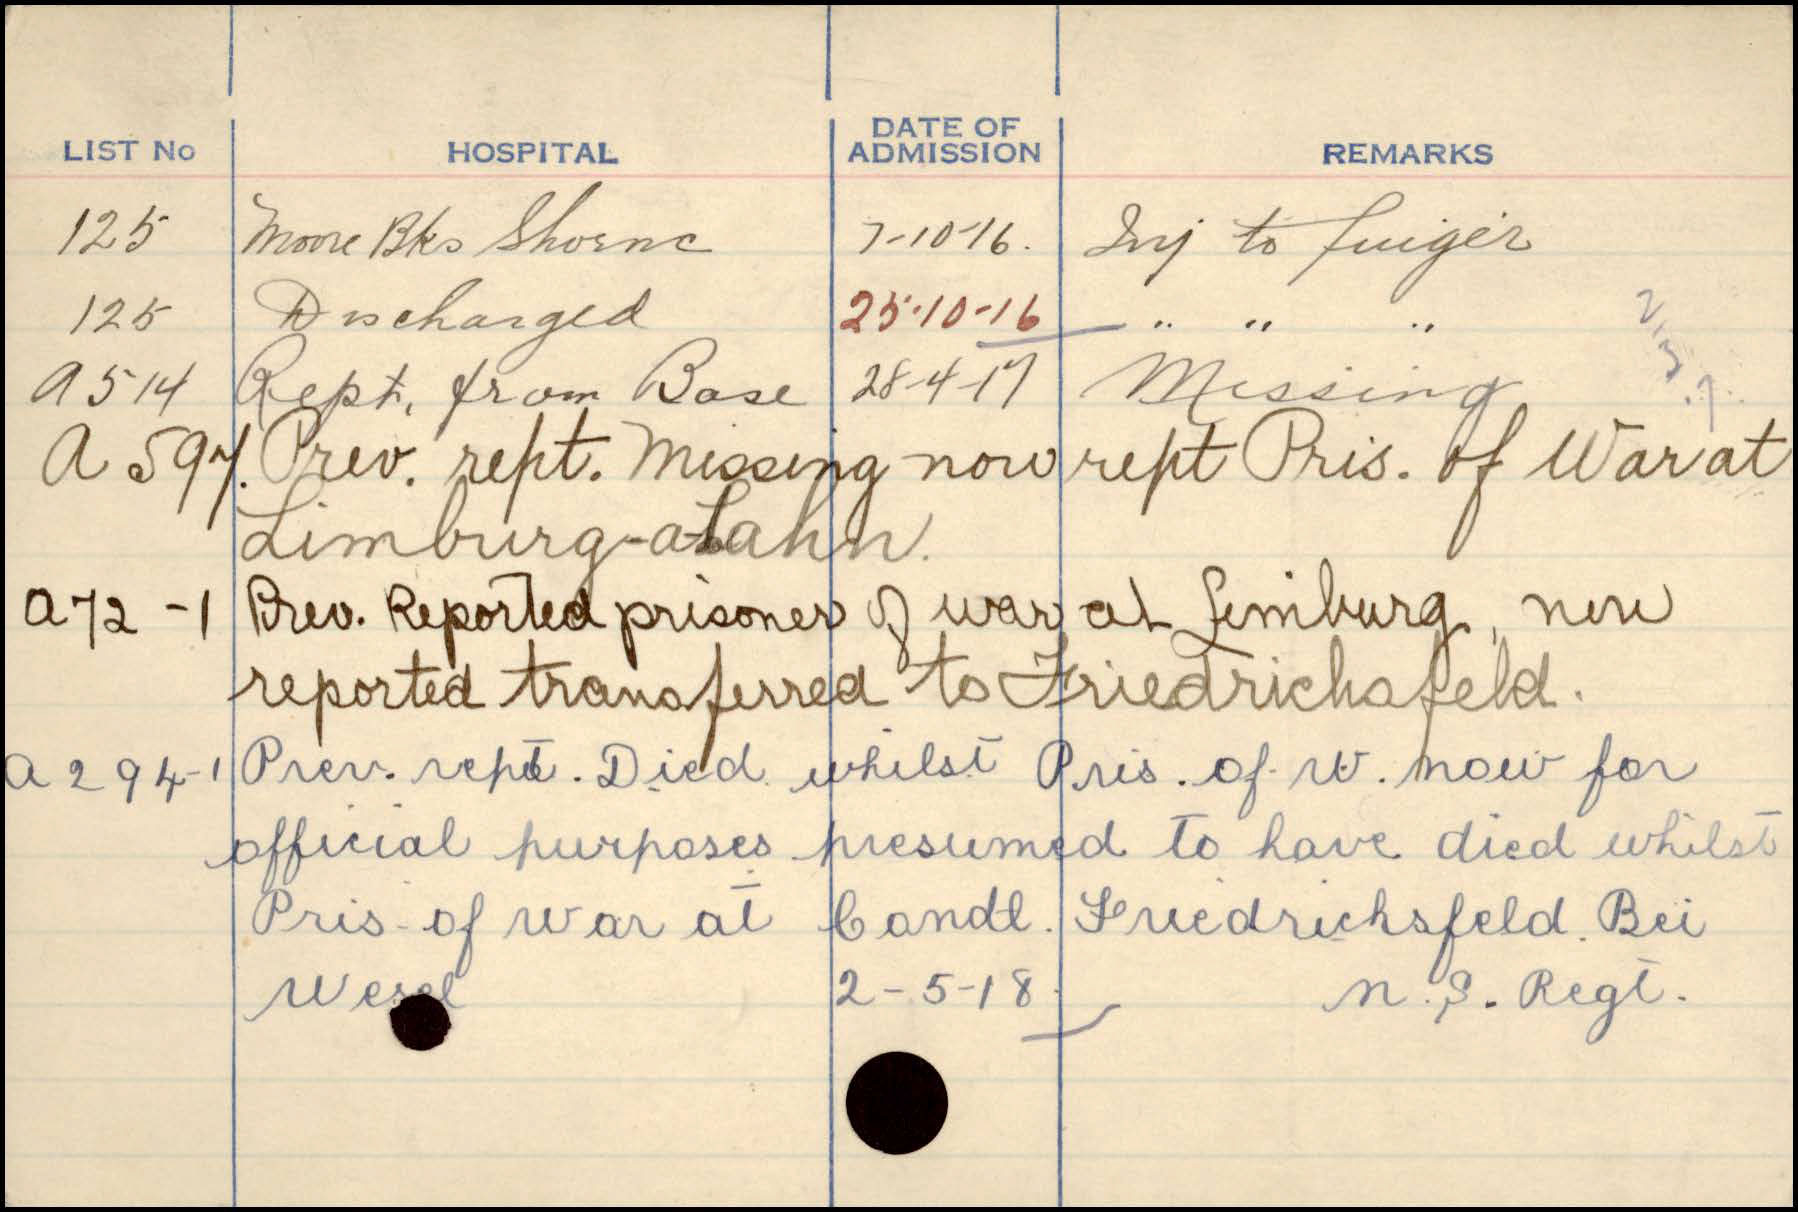 LIST No HOSPITAL DATE OF ADMISSION REMARKS
125 Moore Bks Shornc 7-10-16. Inj to finger
125 Discharged 25-10-16 " " "
A 514 Rept. from Base 28-4-17 Missing
A 597. Prev. rept. Missing now rept Pris. of War at
Limburg-a-Lahn.
A72-1 Prev. Reported prisoner of war at Limburg, now
reported transferred to Friedrichsfeld.
A294-1 Prev. rept. Died whilst Pris. of W. now for
official purposes presumed to have died whilst
Pris. of War at Candl. Friedrichsfeld. Bei
Wesel 2-5-18. N.S. Regt.